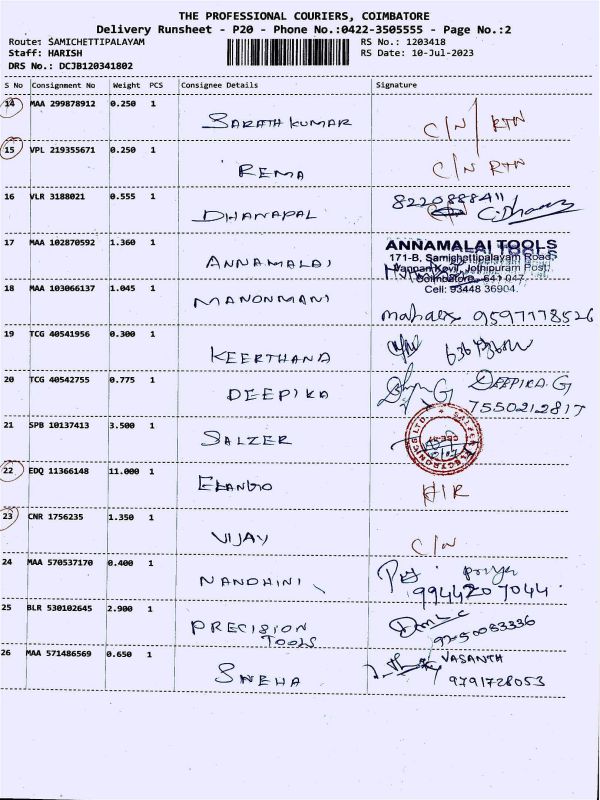 THE PROFESSIONAL COURIERS, COIMBATORE
Delivery Runsheet - P20 - Phone No.:0422-3505555 - Page No.:2
Route: SAMICHETTIPALAYAM RS No.: 1203418
Staff: HARISH RS Date: 10-Jul-2023
DRS No.: DCJB120341802
S No Consignment No Weight PCS Consignee Details Signature
14 MAA 299878912 0.250 1
SARATH KUMAR C/N RTN
15 VPL 219355671 0.250 1
REMA C/N RTN
16 VLR 3188021 0.555 1 8220888411
DHANAPAL
17 MAA 102870592 1.360 1 ANNAMALAI TOOLS
ANNAMALAI 171-B, Samichettipalayam Road,
Vannan Kovil, Jothipuram Post,
Coimbatore - 641 047.
18 MAA 103066137 1.045 1 Cell: 93448 36904.
MANONMANI 9597178526
19 TCG 40541956 0.300 1
KEERTHANA
20 TCG 40542755 0.775 1 DEEPIKA. G
DEEPIKA 7550212817
21 SPB 10137413 3.500 1
SALZER SALZER ELECTRONICS LTD.
22 EDQ 11366148 11.000 1
ELANGO
23 CNR 1756235 1.350 1
VIJAY C/N
24 MAA 570537170 0.400 1 Priya
NANDHINI 9944207044
25 BLR 530102645 2.900 1
PRECISION
TOOLS
26 MAA 571486569 0.650 1 VASANTH
SNEHA 9791728053